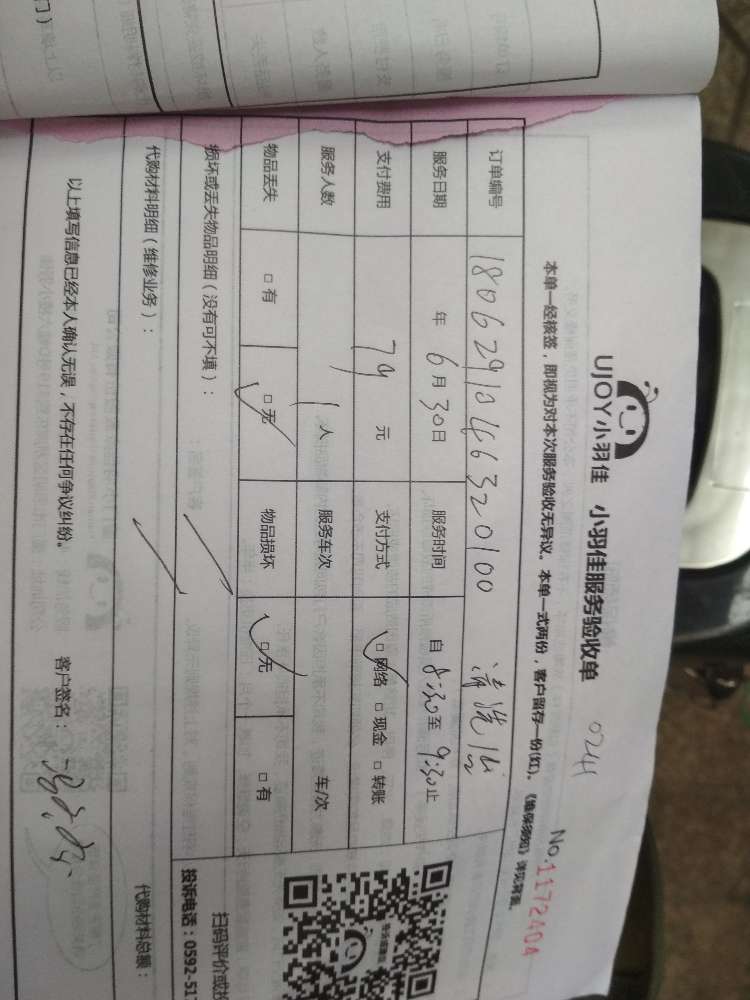 UJOY小羽佳 小羽佳服务验收单
024H
No.1172404
本单一经核签，即视为对本次服务验收无异议。本单一式两份，客户留存一份(红)，《维保须知》详见背面。
订单编号 1806291046320100
服务日期 年 6月30日 服务时间 自 8:30至 9:30止
支付费用 79 元 支付方式 □网络 □现金 □转账
服务人数 1人 服务车次 车/次
物品丢失 □有 □无 物品损坏 □无 □有
损坏或丢失物品明细（没有可不填）：
扫码评价或投
投诉电话：0592-517
代购材料明细（维修业务）：
代购材料总额：
以上填写信息已经本人确认无误，不存在任何争议纠纷。 客户签名：